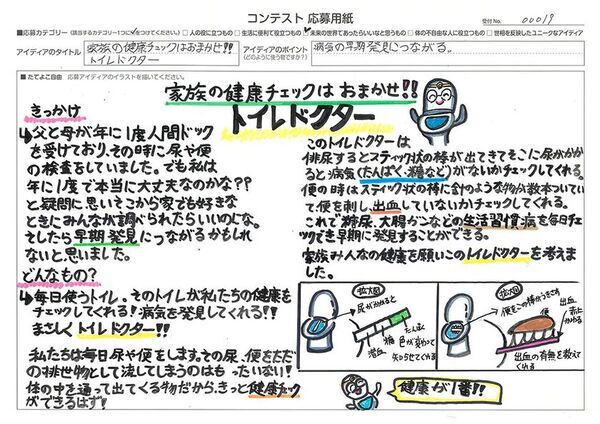 コンテスト 応募用紙
受付No. 00019
■応募カテゴリー(該当するカテゴリー1つに✓をつけてください) □人の役に立つもの □生活に便利で役立つもの ✓未来の世界であったらいいなと思うもの □体の不自由な人に役立つもの □世相を反映したユニークなアイディア
アイディアのタイトル
家族の健康チェックはおまかせ!!
トイレドクター
アイディアのポイント
(どのように役立つ物ですか?)
病気の早期発見につながる。
■たてよこ自由 応募アイディアのイラストを描いてください。
家族の健康チェックは おまかせ!!
トイレドクター
きっかけ
父と母が年に1度人間ドック
を受けており、その時に尿や便
の検査をしていました。でも私は
年に1度で本当に大丈夫なのかな??
と疑問に思いそこから家でも好きな
ときにみんなが調べられたらいいのにな。
そしたら早期発見につながるかもしれ
ないと思いました。
どんなもの?
毎日使うトイレ。そのトイレが私たちの健康を
チェックしてくれる!病気を発見してくれる!!
まさしくトイレドクター!!
私たちは毎日尿や便をします。その尿、便をただ
の排せつ物として流してしまうのはもったいない!
体の中を通って出てくる物だから、きっと健康チェック
ができるはず!
このトイレドクターは
排尿するとスティック状の棒が出てきてそこに尿がかか
ると病気(たんぱく、糖など)がないかチェックしてくれる。
便の時はスティック状の棒に針のような物が数本ついてい
て、便を刺し、出血していないかチェックしてくれる。
これで糖尿、大腸がんなどの生活習慣病を毎日チェッ
クでき早期に発見することができる。
家族みんなの健康を願いこのトイレドクターを考えま
した。
拡大図
尿がかかると
糖
潜血
たんぱく
色が変わって
知らせてくれる
拡大図
便をこの棒がうきさす
便
出血
赤止
わかる
出血の有無を教えて
くれる
健康が1番!!